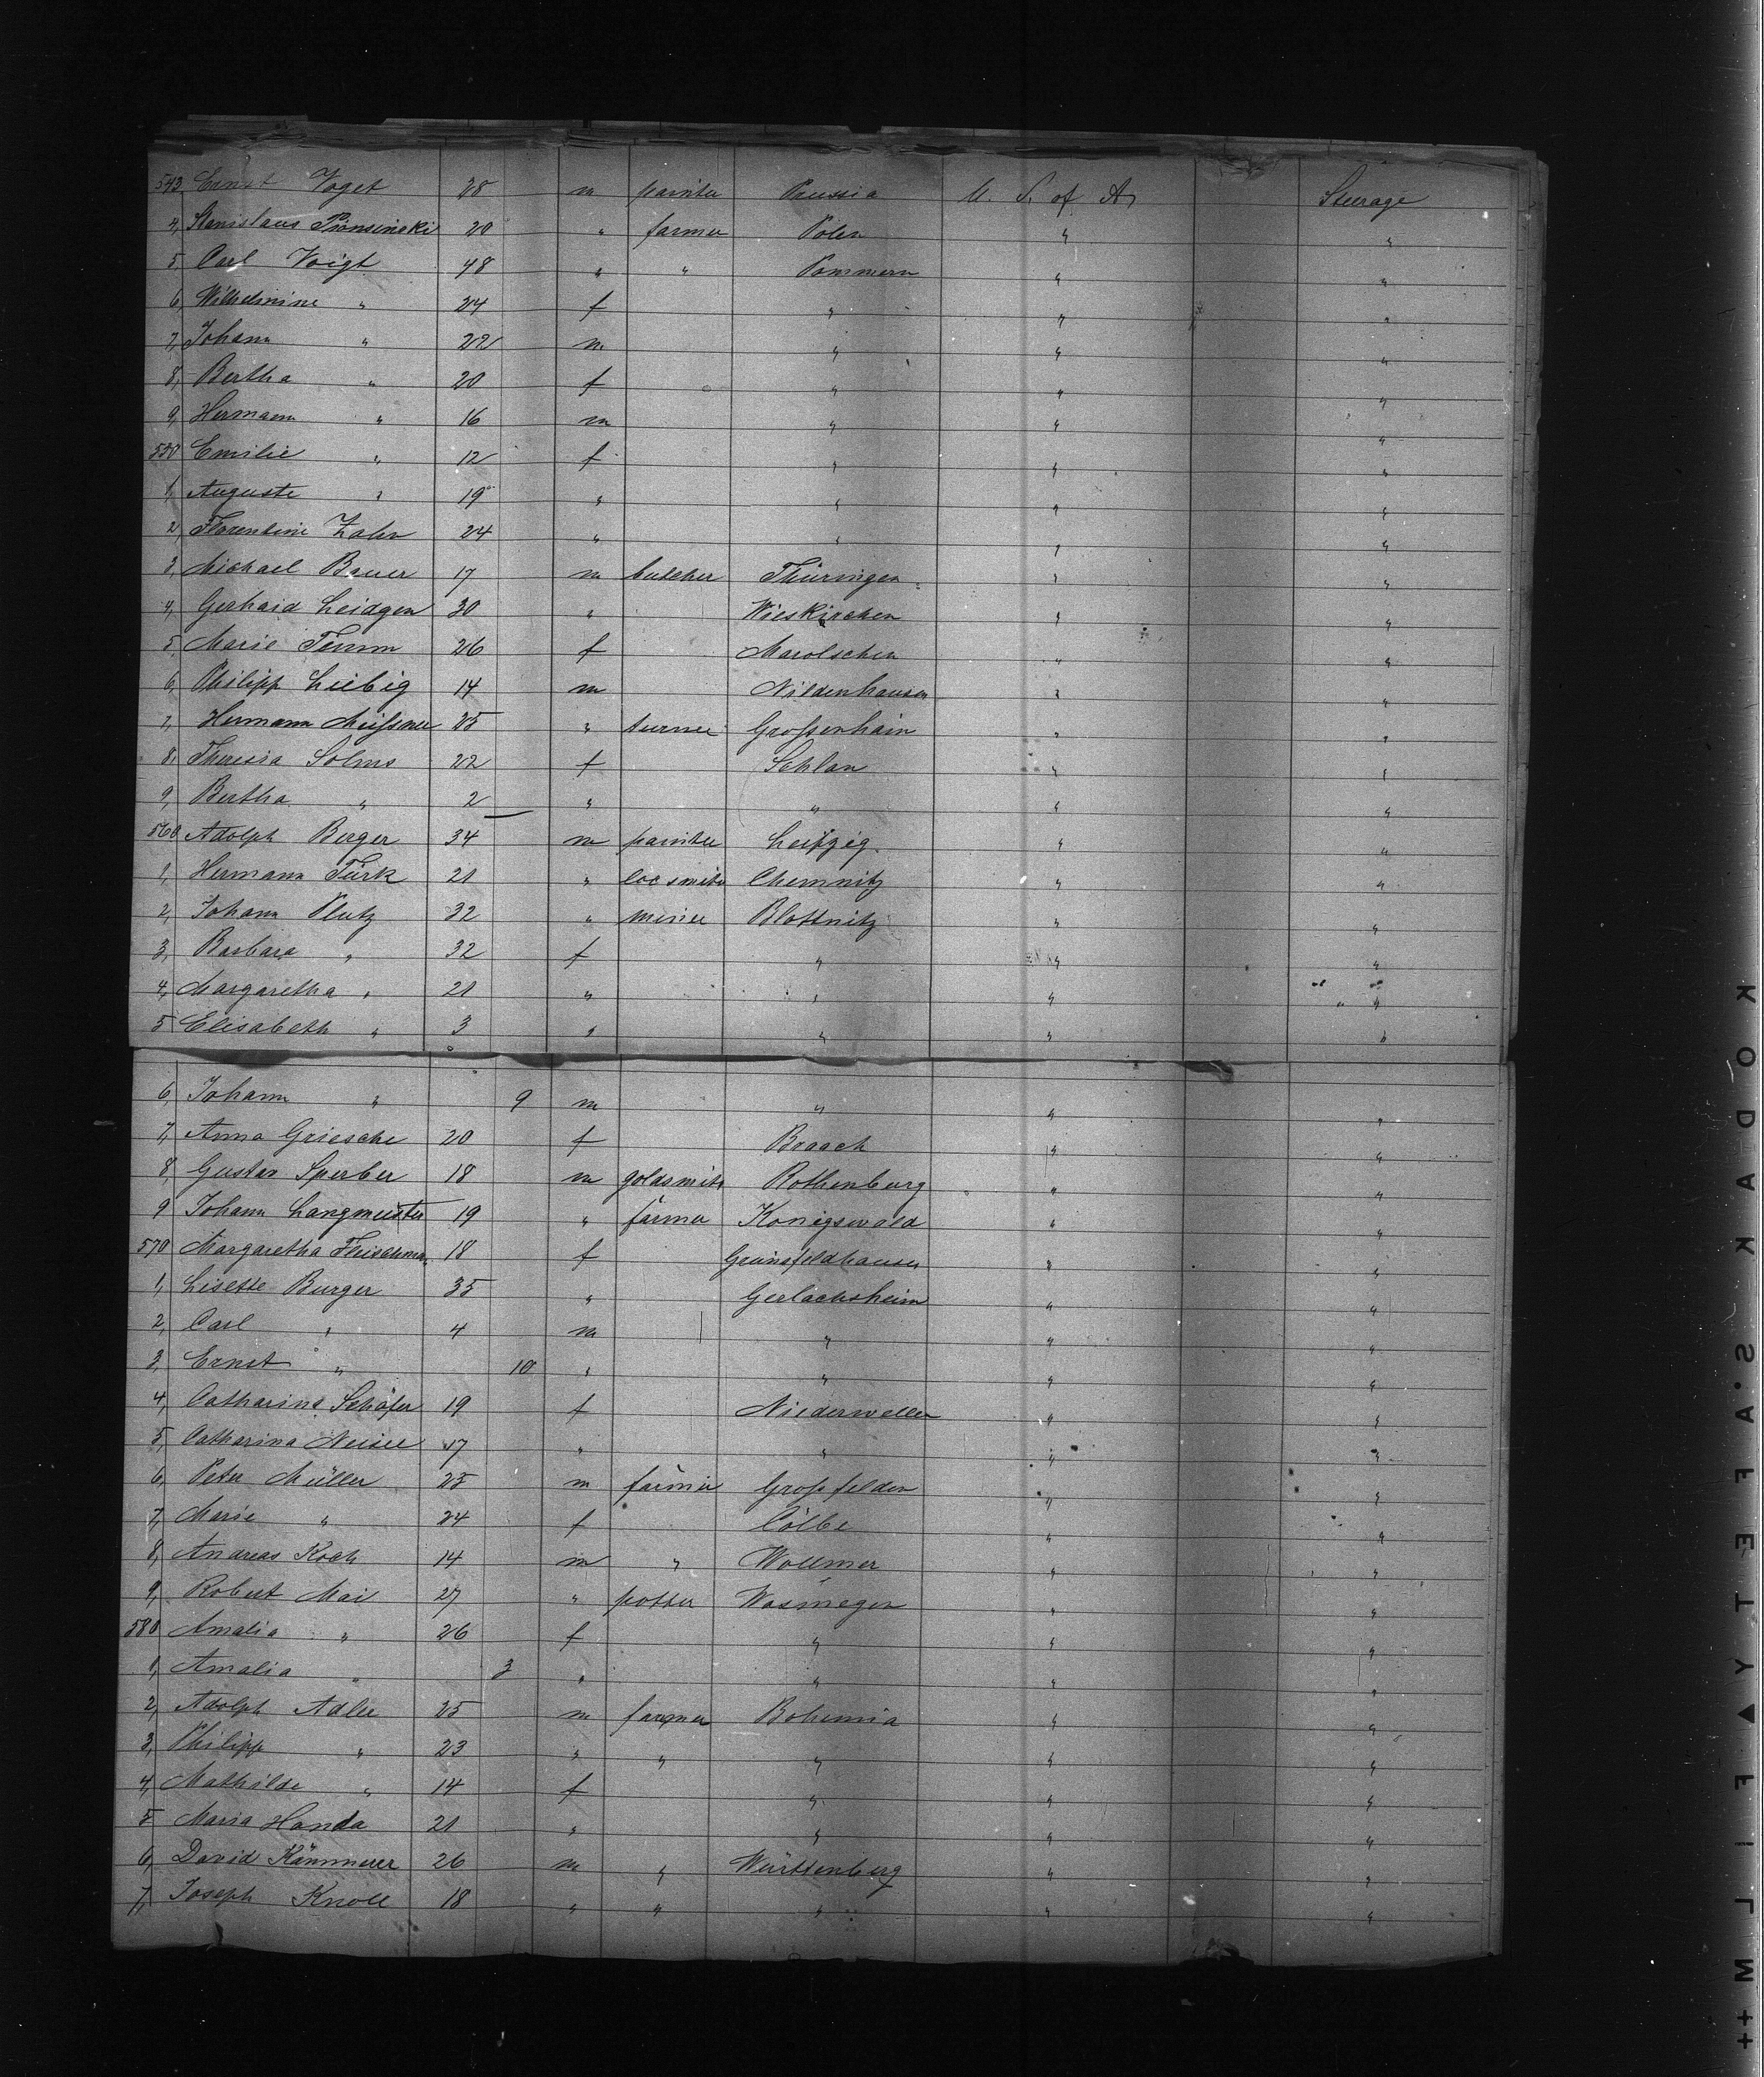 543 Ernst Voget 28 m painter Prussia U. S. of A. Steerage
4, Stanislaus 20 " farmer Polen " "
5, Carl Voigt 48 " " Pommern " "
6, Wilhelmine " 24 f " " "
7, Johann " 22 m " " "
8, Bertha " 20 f " " "
9, Hermann " 16 m " " "
550 Emilie " 12 f " " "
1, Auguste " 19 " " " "
2, Florentine Zahn 24 " " " "
3, Michael Bauer 17 m butcher Thüringen " "
4, Gerhard Leidgen 30 " Wieskirchen " "
5, Marie 26 f " "
6, Philipp Liebig 14 m " "
7, Hermann Meißner 25 " turner Großenhain " "
8, Theresia Solms 22 f Schlan " "
9, Bertha " 2 " " " "
560 Adolph Berger 34 m painter Leipzig " "
1, Hermann Türk 21 " locsmith Chemnitz " "
2, Johann Plutz 32 " miner Blottnitz " "
3, Barbara " 32 f " " "
4, Margaretha " 21 " " " "
5 Elisabeth " 3 " " " "
6, Johann " 9 m " " "
7, Anna Griesche 20 f Braach " "
8, Gustav Sperber 18 m goldsmith Rothenburg " "
9 Johann Langmeister 19 " farmer Konigswald " "
570 Margaretha Fleischman 18 f Grünsfeldhausen " "
1, Lisette Burger 35 " Gerlachsheim " "
2, Carl " 4 m " " "
3, Ernst " 10 " " " "
4, Catharina Schäfer 19 f Niederweller " "
5, Catharina 17 " " " "
6, Peter Müller 25 m farmer Großfelden " "
7, Marie " 24 f Cölbe " "
8, Andreas Koch 14 m " Wollmer " "
9, Robert Mai 27 " potter Wasmegen " "
580 Amalia " 26 f " " "
1, Amalia " 3 " " " "
2, Adolph Adler 25 m farmer Bohemia " "
3, Philipp " 23 " " " " "
4, Mathilde " 14 f " " "
5 Maria Honda 21 " " " "
6, David Kämmerer 26 m " Württenberg " "
7, Joseph Knoll 18 " " " " "
KODAK·SAFETY▲FILM++